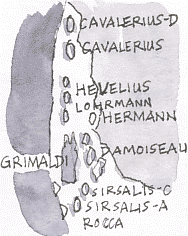 CAVALERIUS-D
CAVALERIUS
HEVELIUS
LOHRMANN
HERMANN
DAMOISEAU
GRIMALDI
SIRSALIS-C
SIRSALIS-A
ROCCA